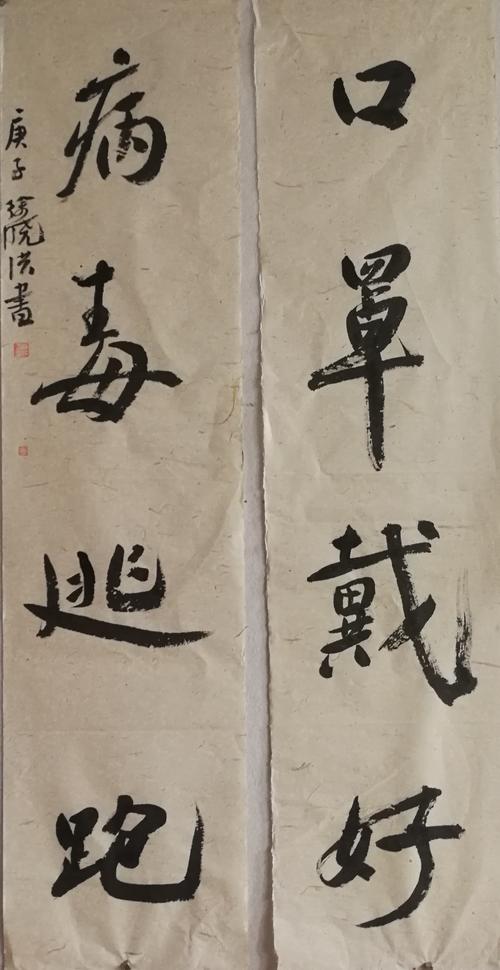 口罩戴好
病毒逃跑
庚子徐晓洪書